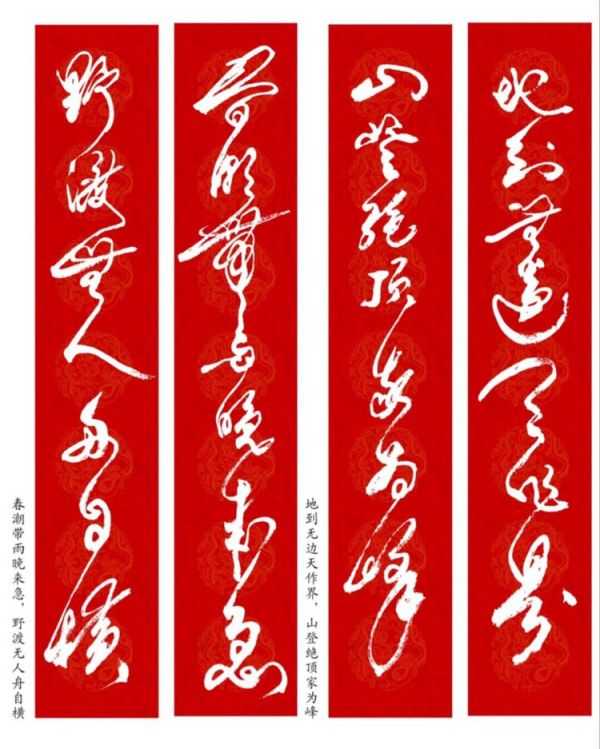 地到無邊天作界
山登絕頂家為峰
地到无边天作界，山登绝顶家为峰
春潮帶雨晚來急
野渡無人舟自橫
春潮带雨晚来急，野渡无人舟自横